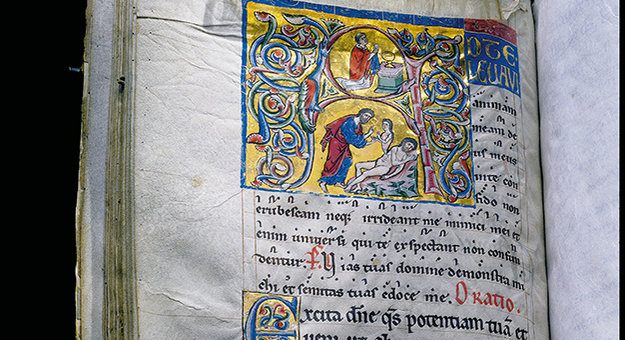 A
D TE
LEVAVI
animam
meam de
us meus
in te con
fido non
erubescam neqꝫ irrideant me inimici mei et
enim universi qui te exspectant non confun
dentur. Vias tuas domine demonstra mi
chi et semitas tuas edoce me. Oratio.
Excita dn̄e q̄s potentiam tuā et